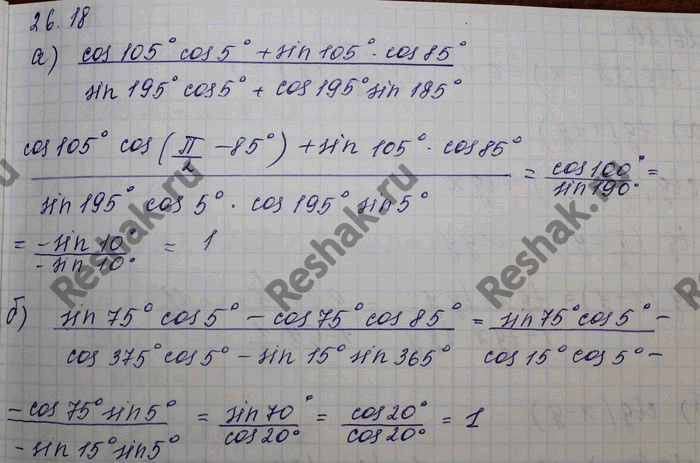 26.18
а) cos 105° cos 5° + sin 105° · cos 85°
sin 195° cos 5° + cos 195° sin 185°
cos 105° cos (π/2 - 85°) + sin 105° · cos 85°
sin 195° cos 5° · cos 195° sin 5°
= cos 100° / sin 190° =
= -sin 10° / -sin 10° = 1
б) sin 75° cos 5° - cos 75° cos 85° = sin 75° cos 5° -
cos 375° cos 5° - sin 15° sin 365° cos 15° cos 5° -
-cos 75° sin 5° / -sin 15° sin 5° = sin 70° / cos 20° = cos 20° / cos 20° = 1
Reshak.ru
Reshak.ru
Reshak.ru
Reshak.ru